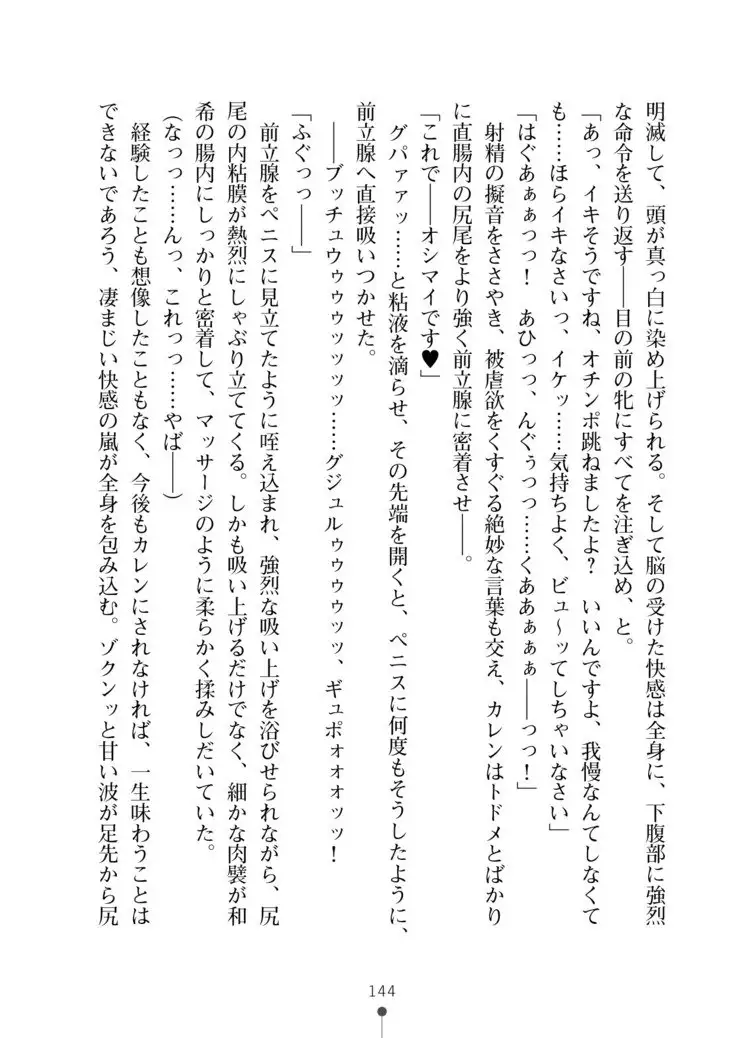 明滅して、頭が真っ白に染め上げられる。そして脳の受けた快感は全身に、下腹部に強烈
な命令を送り返す――目の前の牝にすべてを注ぎ込め、と。
「あっ、イキそうですね、オチンポ跳ねましたよ？　いいんですよ、我慢なんてしなくて
も……ほらイキなさいっ、イケッ……気持ちよく、ビュ～ッてしちゃいなさい」
「はぐあぁぁっっ！　あひっっ、んぐぅっっ……くああぁぁぁ――っっ！」
射精の擬音をささやき、被虐欲をくすぐる絶妙な言葉も交え、カレンはトドメとばかり
に直腸内の尻尾をより強く前立腺に密着させ――。
「これで――オシマイです♥」
グパァァッ……と粘液を滴らせ、その先端を開くと、ペニスに何度もそうしたように、
前立腺へ直接吸いつかせた。
――ブッチュウゥゥゥゥッッッ……グジュルゥゥゥゥッッ、ギュポォォォッッ！
「ふぐっっ――」
前立腺をペニスに見立てたように咥え込まれ、強烈な吸い上げを浴びせられながら、尻
尾の内粘膜が熱烈にしゃぶり立ててくる。しかも吸い上げるだけでなく、細かな肉襞が和
希の腸内にしっかりと密着して、マッサージのように柔らかく揉みしだいていた。
（なっっ……んっ、これっっ……やば――）
経験したことも想像したこともなく、今後もカレンにされなければ、一生味わうことは
できないであろう、凄まじい快感の嵐が全身を包み込む。ゾクンッと甘い波が足先から尻
144